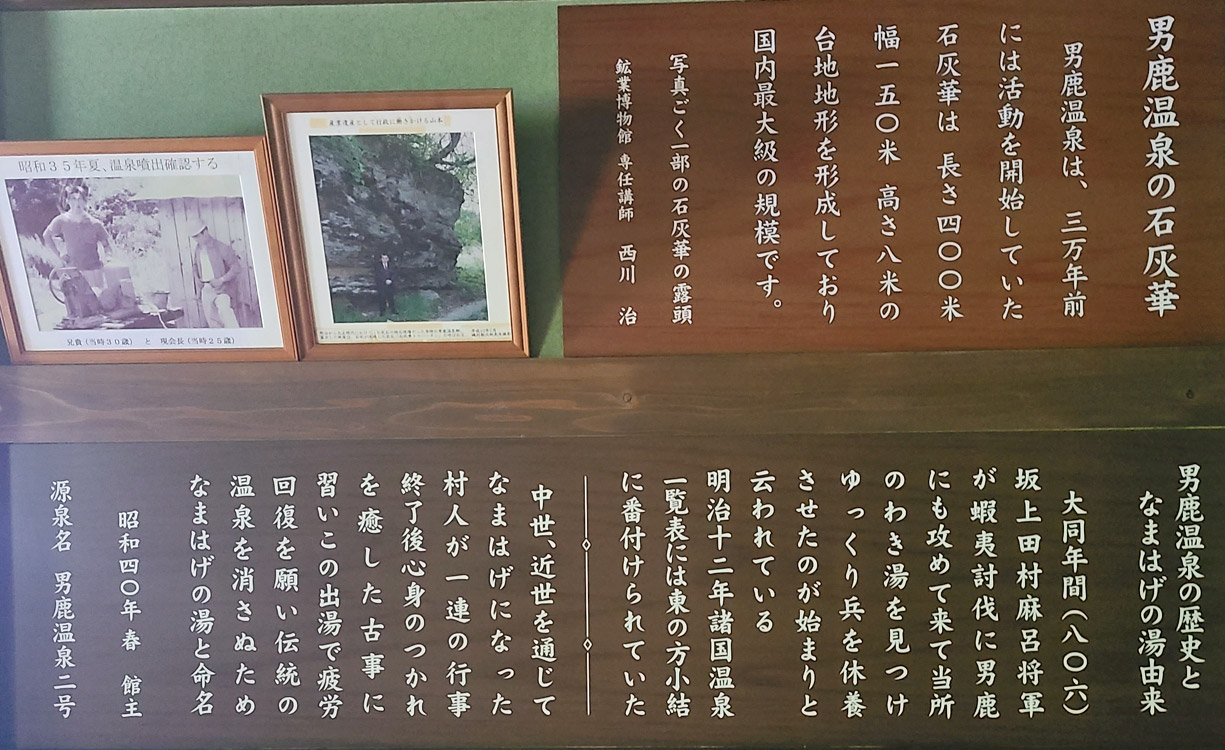 男鹿温泉の石灰華
男鹿温泉は、三万年前
には活動を開始していた
石灰華は 長さ四〇〇米
幅一五〇米 高さ八米の
台地地形を形成しており
国内最大級の規模です。
写真ごく一部の石灰華の露頭
鉱業博物館 専任講師 西川 治
産業遺産として行政に働きかける山本
昭和35年夏、温泉噴出確認する
兄貴(当時30歳) と 現会長(当時25歳)
男鹿温泉の歴史と
なまはげの湯由来
大同年間(八〇六)
坂上田村麻呂将軍
が蝦夷討伐に男鹿
にも攻めて来て当所
のわき湯を見つけ
ゆっくり兵を休養
させたのが始まりと
云われている
明治十二年諸国温泉
一覧表には東の方小結
に番付けられていた
中世、近世を通じて
なまはげになった
村人が一連の行事
終了後心身のつかれ
を癒した古事に
習いこの出湯で疲労
回復を願い伝統の
温泉を消さぬため
なまはげの湯と命名
昭和四〇年春 館主
源泉名 男鹿温泉二号